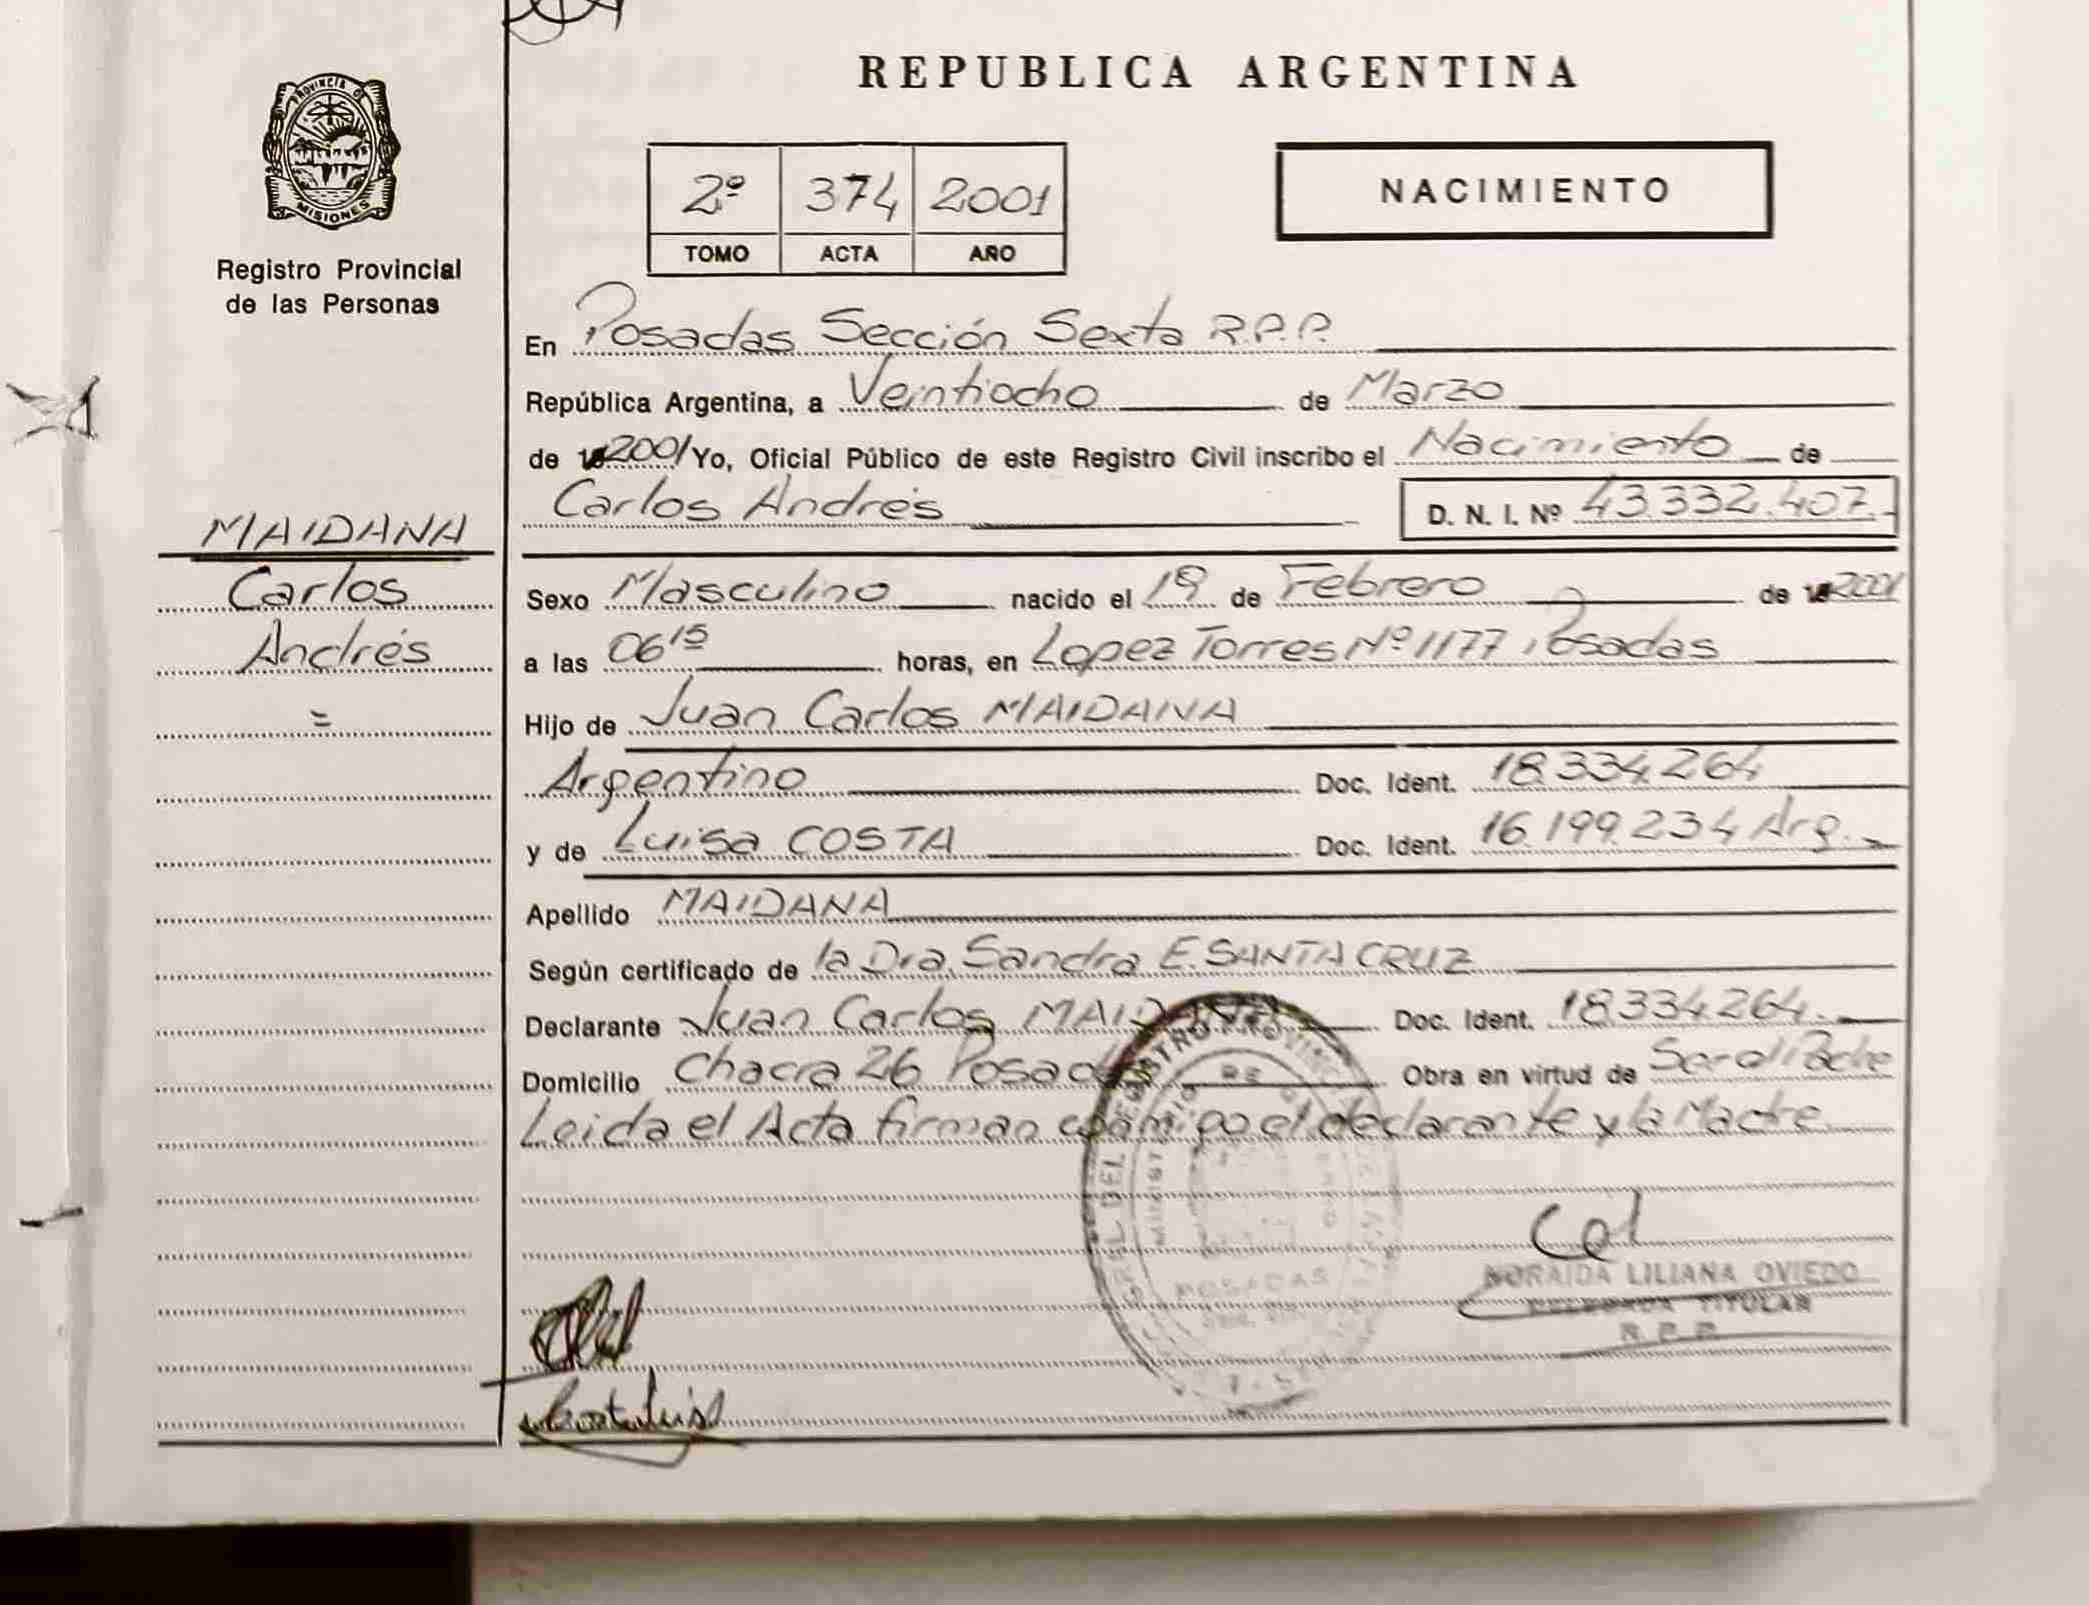 REPUBLICA ARGENTINA
PROVINCIA DE
MISIONES
Registro Provincial
de las Personas
2º 374 2001
TOMO ACTA AÑO
NACIMIENTO
En Posadas Sección Sexta R.P.P.
República Argentina, a Veintiocho de Marzo
de 2001 Yo, Oficial Público de este Registro Civil inscribo el Nacimiento de
Carlos Andrés D. N. I. Nº 43.332.407.-
MAIDANA
Carlos
Andrés
=
Sexo Masculino nacido el 19 de Febrero de 2001
a las 06 15 horas, en Lopez Torres Nº 1177 Posadas
Hijo de Juan Carlos MAIDANA
Argentino Doc. Ident. 18.334.264
y de Luisa COSTA Doc. Ident. 16.199.234 Arg.
Apellido MAIDANA
Según certificado de la Dra. Sandra E. SANTA CRUZ
Declarante Juan Carlos MAIDANA Doc. Ident. 18.334.264.
Domicilio Chacra 26 Posadas Obra en virtud de Ser el Padre
Leida el Acta firman conmigo el declarante y la Madre
POSADAS
NORAIDA LILIANA OVIEDO
DELEGADA TITULAR
R. P. P.